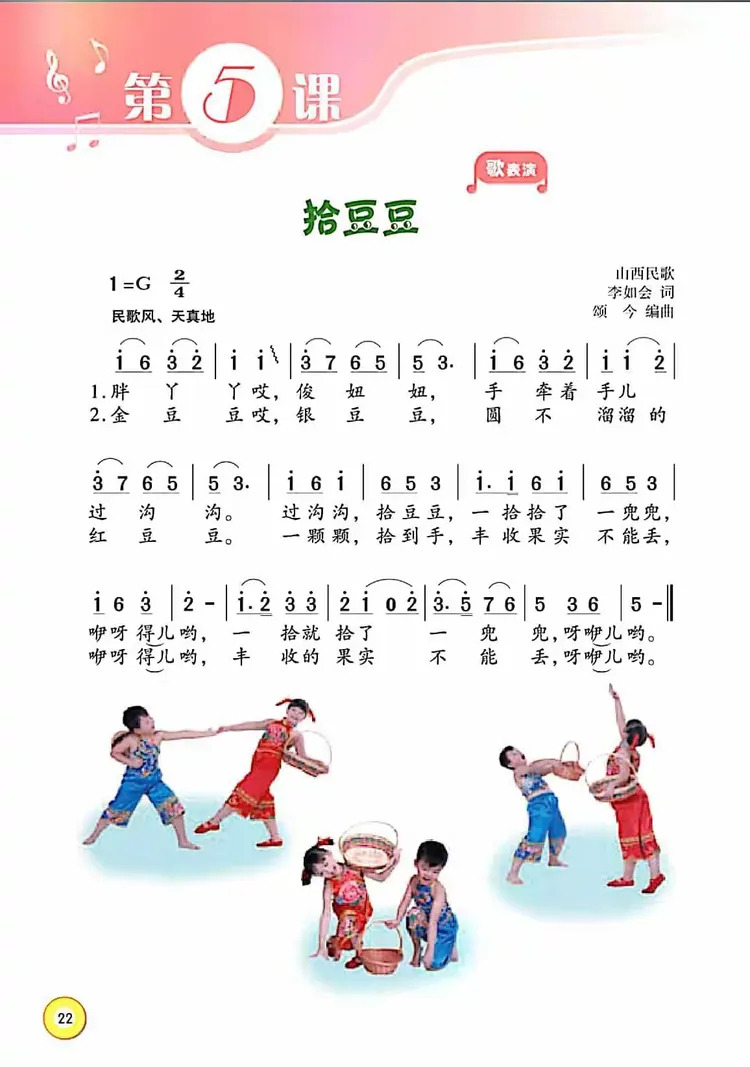 第5课
歌表演
拾豆豆
1=G 2/4
山西民歌
李如会 词
民歌风、天真地
颂 今 编曲
i 6 3̇ 2̇ | i i | 3̇ 7 6 5 | 5 3. | i 6 3̇ 2̇ | i i 2̇ |
1.胖 丫 丫哎,俊 妞 妞, 手 牵着 手儿
2.金 豆 豆哎,银 豆 豆, 圆 不 溜溜的
3̇ 7 6 5 | 5 3. | i 6 i | 6 5 3 | i. i 6 i | 6 5 3 |
过 沟 沟。 过沟沟,拾豆豆,一拾拾了 一兜兜,
红 豆 豆。 一颗颗,拾到手,丰收果实 不能丢,
i 6 3̇ | 2̇ - | i. 2̇ 3̇ 3̇ | 2̇ i 0 2̇ | 3̇. 5 7 6 | 5 3 6 | 5 - ‖
咿呀得儿哟, 一 拾就拾了 一 兜 兜,呀咿儿哟。
咿呀得儿哟, 丰 收的果实 不 能 丢,呀咿儿哟。
22